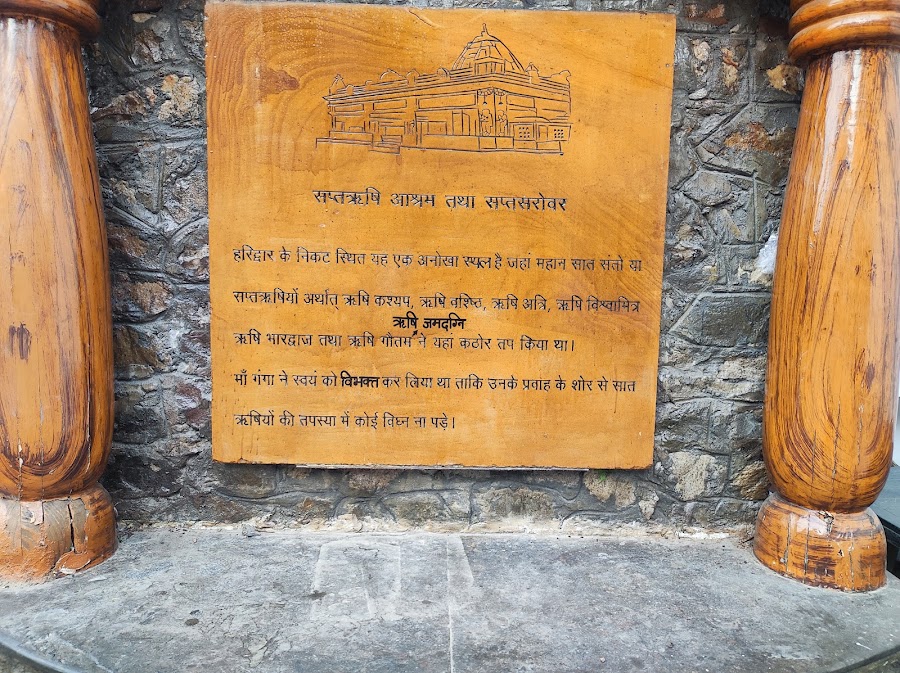 सप्तऋषि आश्रम तथा सप्तसरोवर
हरिद्वार के निकट स्थित यह एक अनोखा स्थल है जहां महान सात संतो या
सप्तऋषियों अर्थात् ऋषि कश्यप, ऋषि वशिष्ठ, ऋषि अत्रि, ऋषि विश्वामित्र
ऋषि जमदग्नि
ऋषि भारद्वाज तथा ऋषि गौतम ने यहां कठोर तप किया था।
माँ गंगा ने स्वयं को विभक्त कर लिया था ताकि उनके प्रवाह के शोर से सात
ऋषियों की तपस्या में कोई विघ्न ना पड़े।